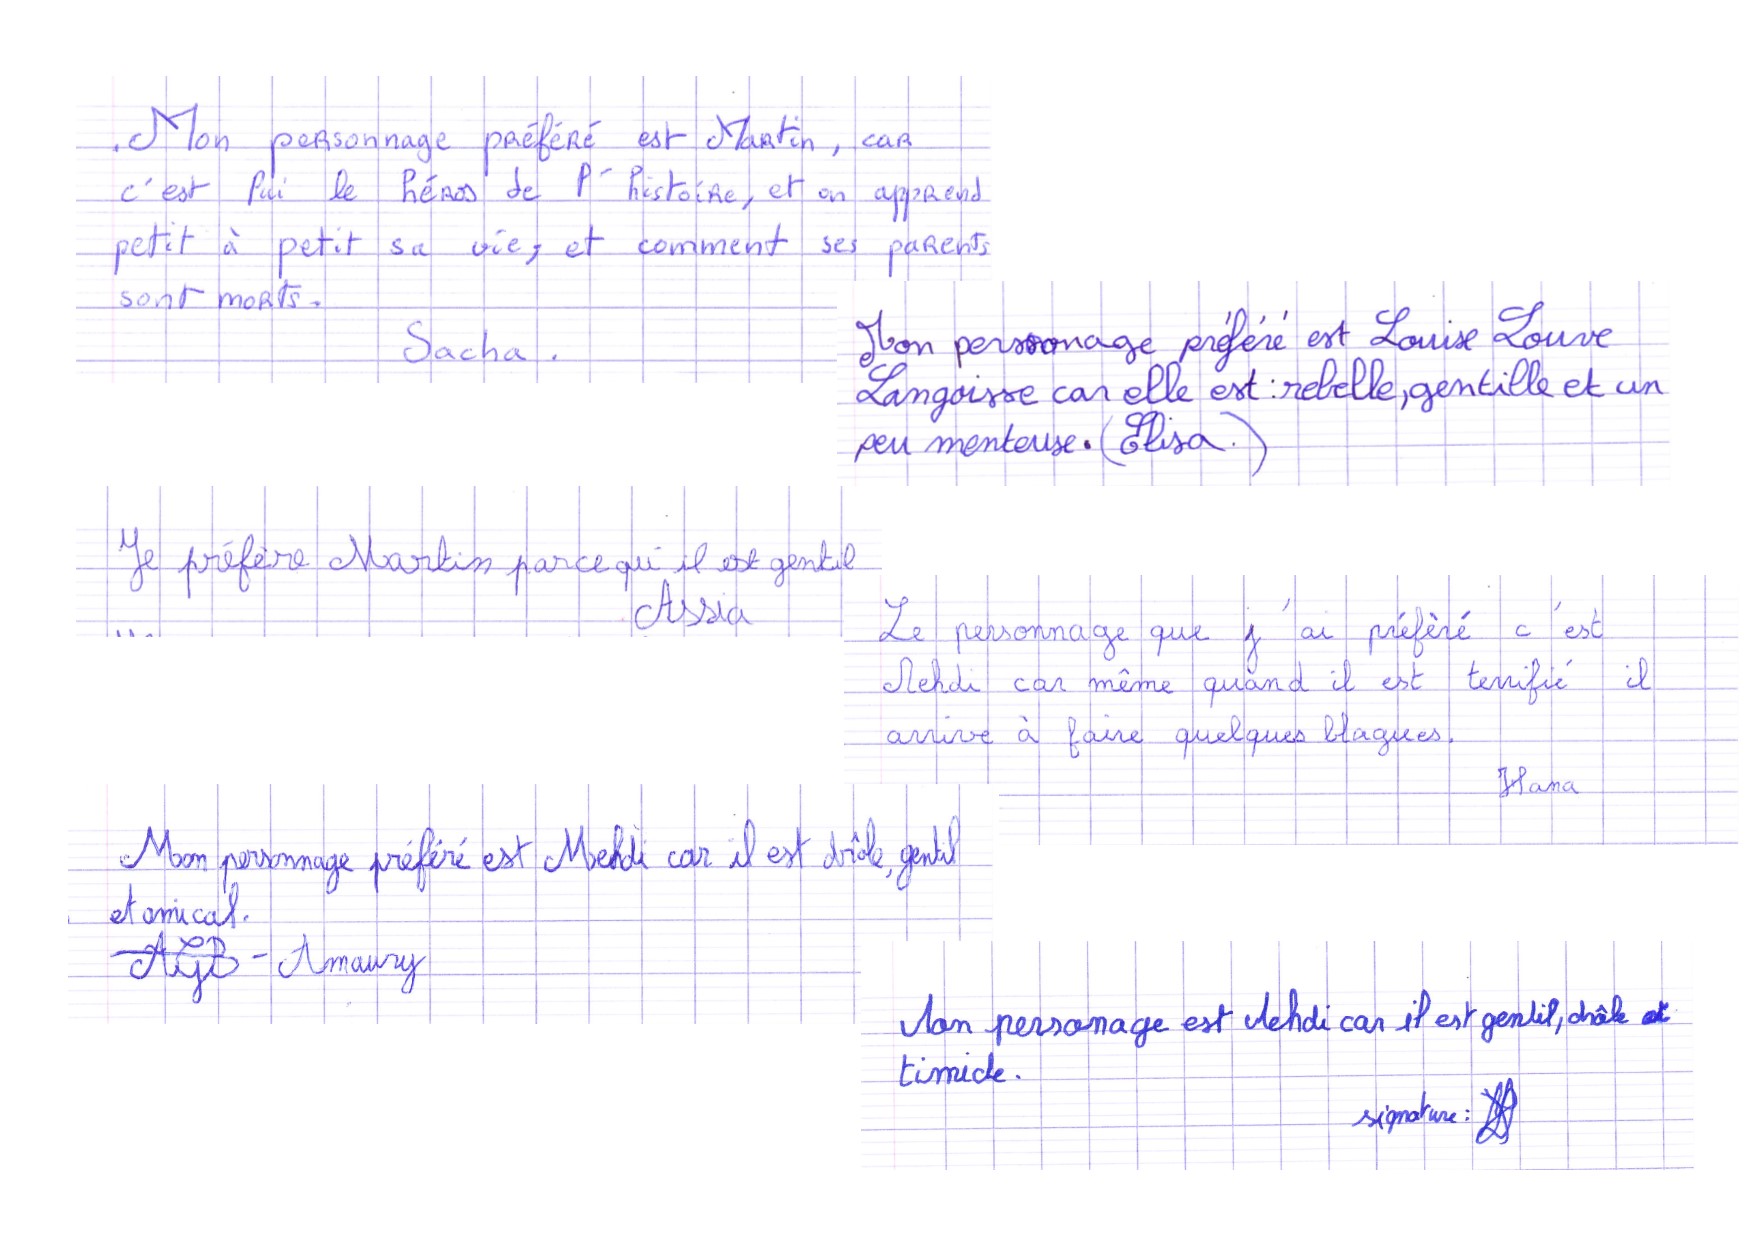 Mon personnage préféré est Martin, car
c'est lui le héros de l'histoire, et on apprend
petit à petit sa vie, et comment ses parents
sont morts.
Sacha.
Mon personnage préféré est Louise Louve
Langoisse car elle est : rebelle, gentille et un
peu menteuse. (Elisa.)
Je préfère Martin parcequ'il est gentil
Assia
Le personnage que j'ai préfèré c'est
Mehdi car même quand il est terrifié il
arrive à faire quelques blagues.
Hana
Mon personnage préféré est Mehdi car il est drôle, gentil
et amical.
AGB - Amaury
Mon personage est Mehdi car il est gentil, drôle et
timide.
signature :